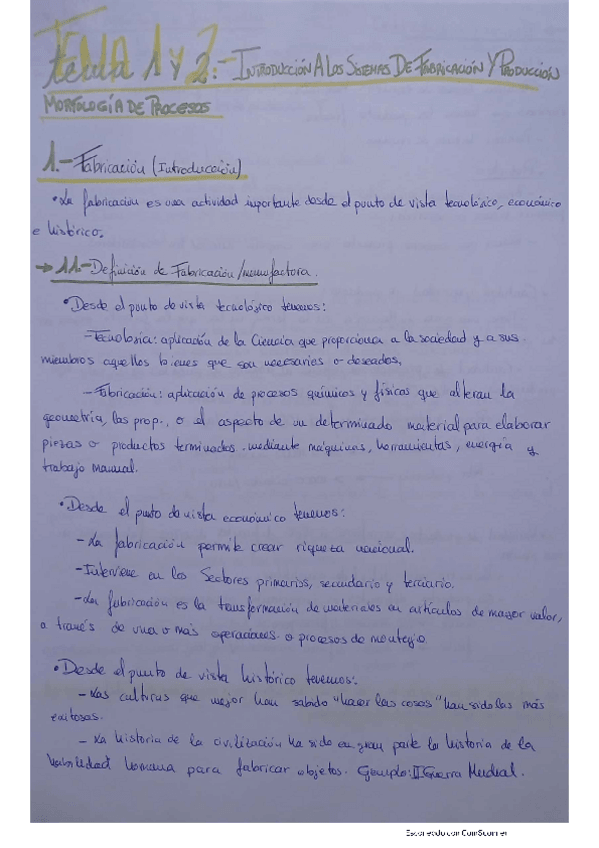 Tema 1 y 2:- INTRODUCCIÓN A LOS SISTEMAS DE FABRICACIÓN Y PRODUCCIÓN
MORFOLOGÍA DE PROCESOS
1.- Fabricación (Introducción)
• La fabricación es una actividad importante desde el punto de vista tecnológico, económico
e histórico.
→ 1.1.- Definición de Fabricación/manufactora.
• Desde el punto de vista tecnológico tenemos:
- Tecnología: aplicación de la Ciencia que proporciona a la sociedad y a sus
miembros aquellos bienes que son necesarios o deseados.
- Fabricación: aplicación de procesos químicos y físicas que alteran la
geometría, las prop., o el aspecto de un determinado material para elaborar
piezas o productos terminados mediante máquinas, herramientas, energía y
trabajo manual.
• Desde el punto de vista económico tenemos:
- La fabricación permite crear riqueza nacional.
- Interviene en los Sectores primarios, secundario y terciario.
- La fabricación es la transformación de materiales en artículos de mayor valor,
a través de una o más operaciones o procesos de montaje.
• Desde el punto de vista histórico tenemos:
- Las culturas que mejor han sabido "hacer las cosas" han sido las más
exitosas.
- La historia de la civilización ha sido en gran parte la historia de la
habilidad humana para fabricar objetos. Ejemplo: II Guerra Mundial.
Escaneado con CamScanner